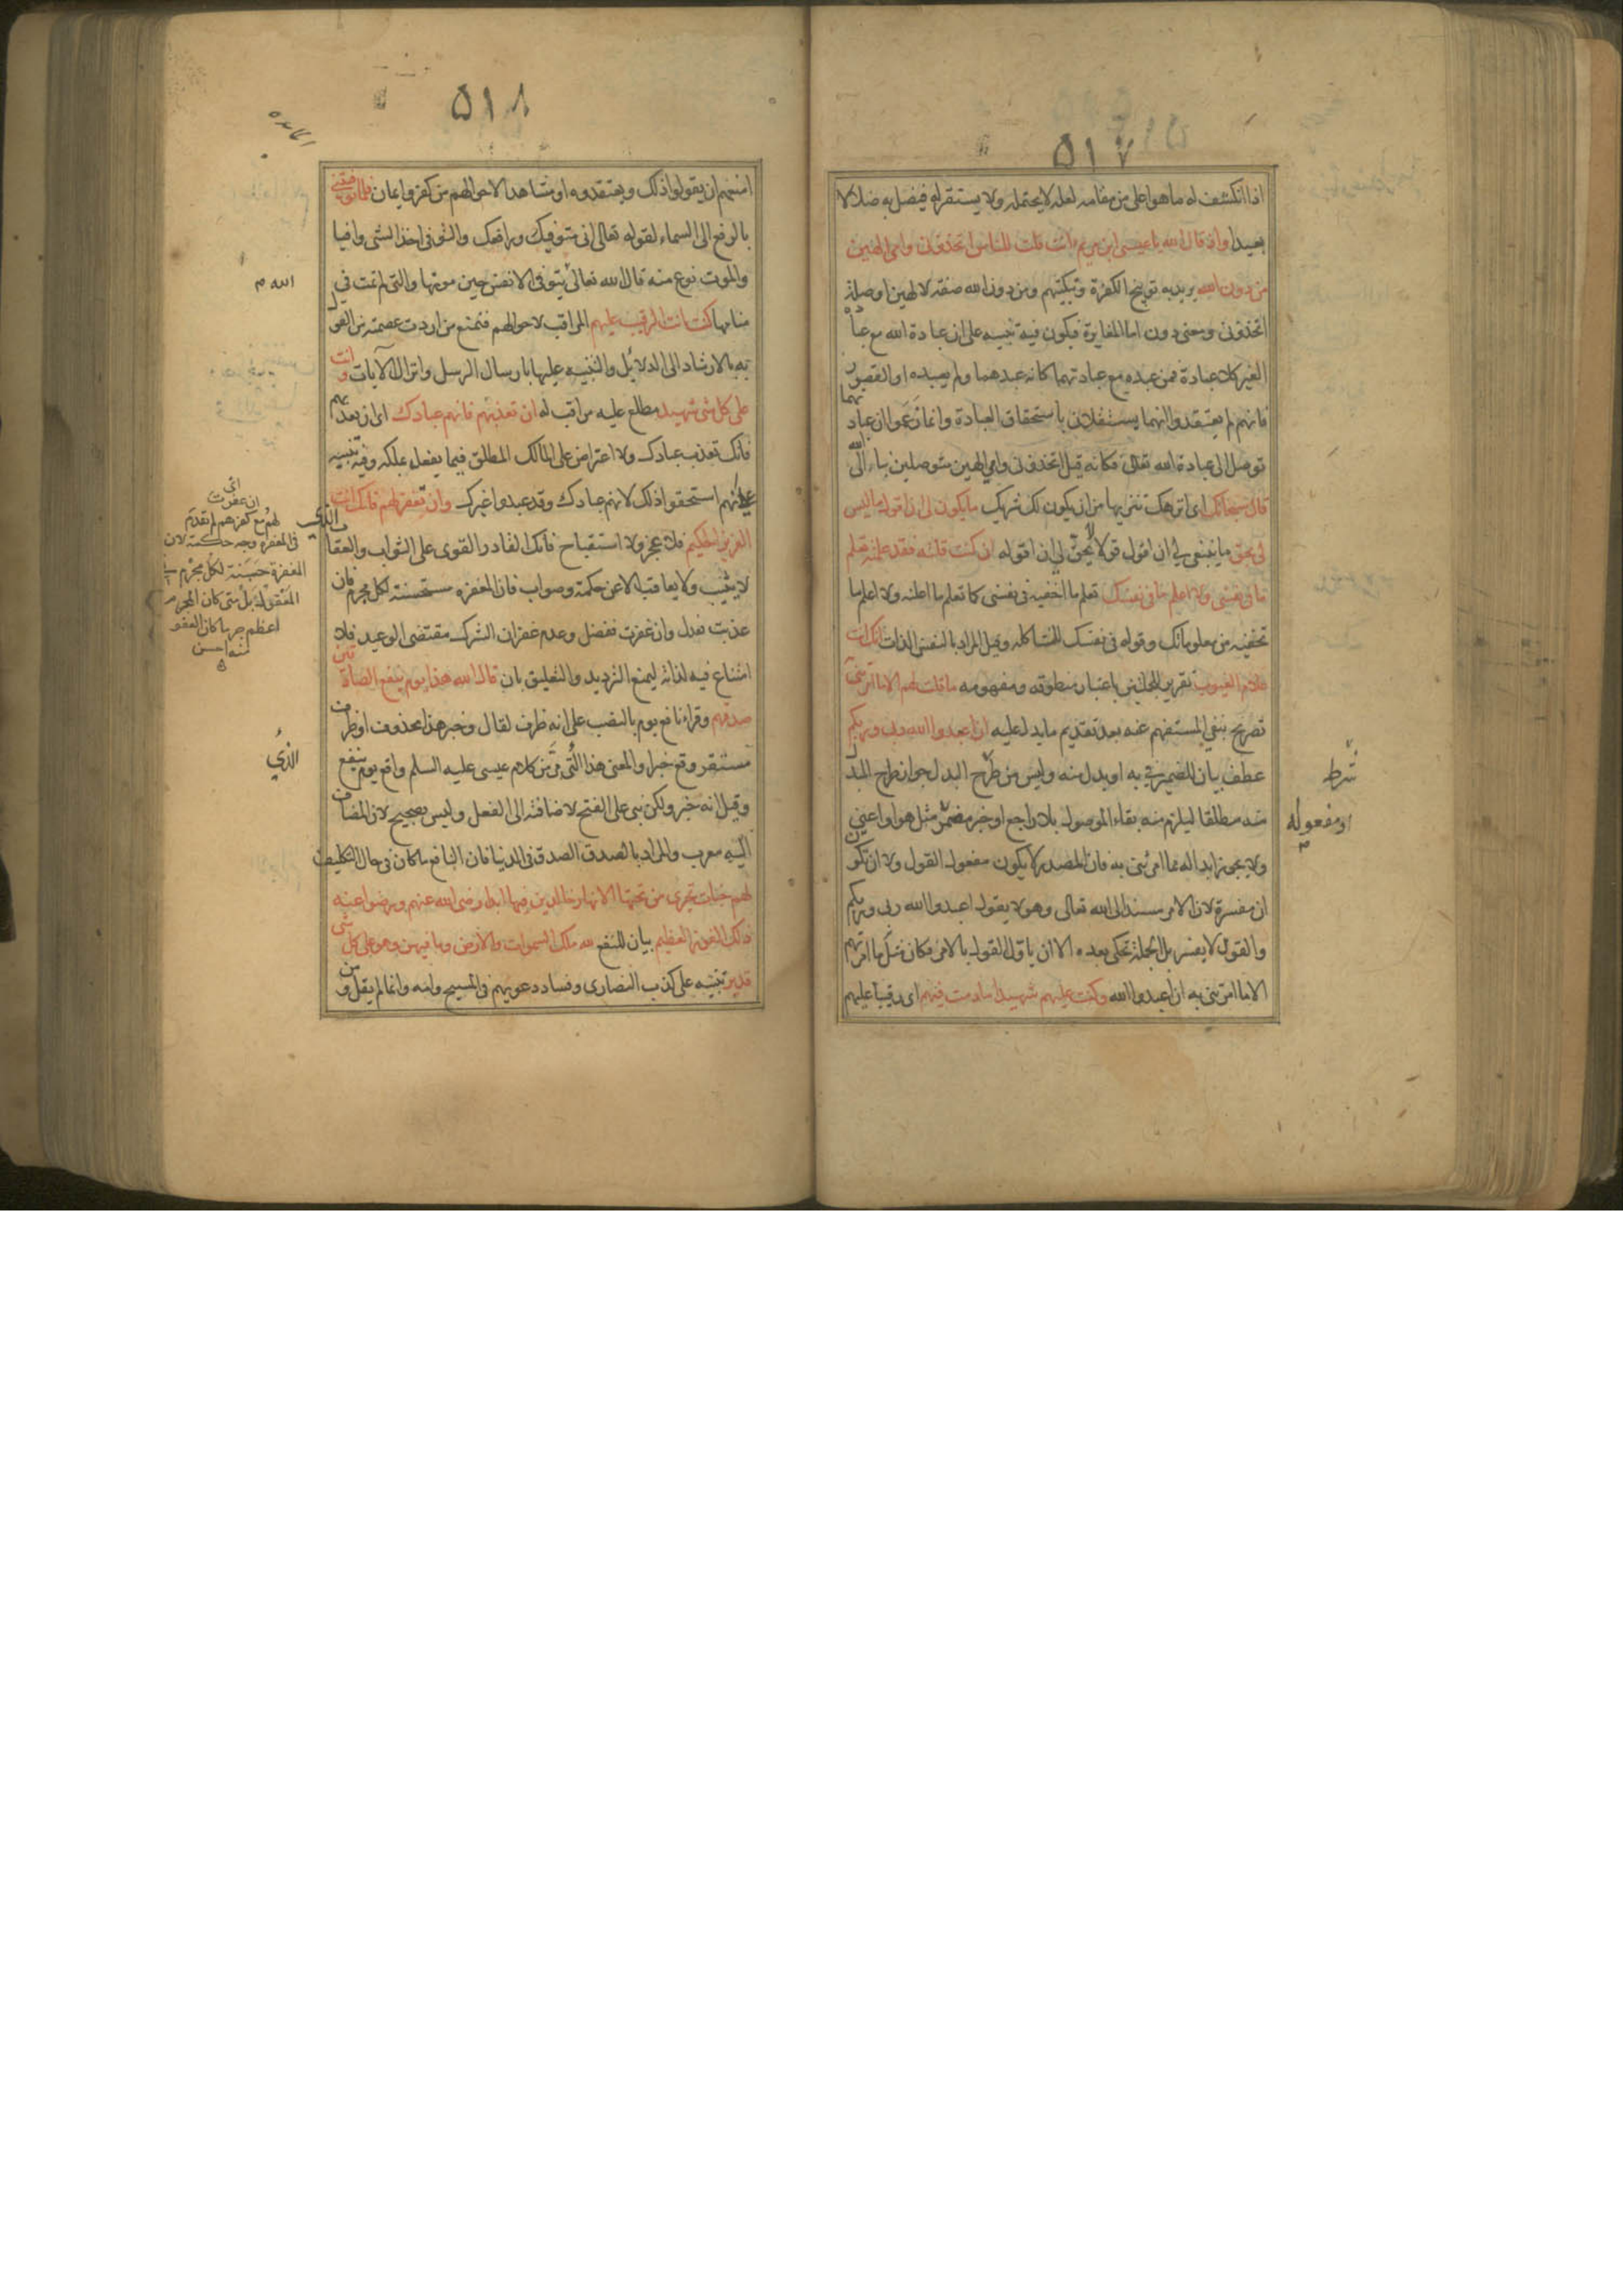 ۵۱۷
اذا انكشف له ما هو اعلى من مقامه لعله لا يحتمله ولا يستقر له فيضل به ضلالا
بعيدا واذ قال الله يا عيسى ابن مريم ءانت قلت للناس اتخذونى وامى الهين
من دون الله يريد به توبيخ الكفرة وتبكيتهم ومن دون الله صفة لالهين او صلة
اتخذونى ومعنى دون اما المغايرة فيكون فيه تنبيه على ان عبادة الله مع عبادة
الغير كلا عبادة فمن عبده مع عبادتهما كانه عبدهما ولم يعبده او القصور
فانهم لم يعتقدوا انهما يستقلان باستحقاق العبادة وانما زعموا ان عبادتهما
توصل الى عبادة الله تعالى فكانه قيل اتخذونى وامى الهين متوصلين بنا الى الله
قال سبحانك اى انزهك تنزيها من ان يكون لك شريك ما يكون لى ان اقول ما ليس
لى بحق ما ينبغى لى ان اقول قولا لا يحق لى ان اقوله ان كنت قلته فقد علمته تعلم
ما فى نفسى ولا اعلم ما فى نفسك تعلم ما اخفيه فى نفسى كما تعلم ما اعلنه ولا اعلم ما
تخفيه من معلوماتك وقوله فى نفسك للمشاكلة وقيل المراد بالنفس الذات انك انت
علام الغيوب تقرير للجملتين باعتبار منطوقه ومفهومه ما قلت لهم الا ما امرتنى
تصريح بنفى المستفهم عنه بعد تقديم ما يدل عليه ان اعبدوا الله ربى وربكم
عطف بيان للضمير فى به او بدل منه وليس من شرط البدل جواز طرح المبدل
منه مطلقا ليلزم منه بقاء الموصول بلا راجع او خبر مضمر مثل هو او اعنى
ولا يجوز ابداله مما امرتنى به فان المصدر لا يكون مفعول القول ولا ان تكون
ان مفسرة لان الامر مسند الى الله تعالى وهو لا يقول اعبدوا الله ربى وربكم
والقول لا يفسر بل الجملة تحكى بعده الا ان ياول القول بالامر فكان مثل ما امرتهم
الا ما امرتنى به ان اعبدوا الله وكنت عليهم شهيدا ما دمت فيهم اى رقيبا عليهم
شرط
او مفعوله
۵۱۸
امنعهم ان يقولوا ذلك ويعتقدوه او مشاهدا لاحوالهم من كفر وايمان فلما توفيتنى
بالرفع الى السماء لقوله تعالى انى متوفيك ورافعك والتوفى اخذ الشى وافيا
والموت نوع منه قال الله تعالى يتوفى الانفس حين موتها والتى لم تمت فى
منامها كنت انت الرقيب عليهم المراقب لاحوالهم فتمنع من اردت عصمته من القول
به بالارشاد الى الدلائل والتنبيه عليها بارسال الرسل وانزال الآيات وانت
على كل شى شهيد مطلع عليه مراقب له ان تعذبهم فانهم عبادك اى ان تعذبهم
فانك تعذب عبادك ولا اعتراض على المالك المطلق فيما يفعل بملكه وفيه تنبيه
على انهم استحقوا ذلك لانهم عبادك وقد عبدوا غيرك وان تغفر لهم فانك انت
العزيز الحكيم فلا عجز ولا استقباح فانك القادر القوى على الثواب والعقاب الذى
لا يثيب ولا يعاقب الا عن حكمة وصواب فان المغفرة مستحسنة لكل مجرم فان
عذبت فعدل وان غفرت ففضل وعدم غفران الشرك مقتضى الوعيد فلا
امتناع فيه لذاته ليمنع الترديد والتعليق بان قال الله هذا يوم ينفع الصادقين
صدقهم وقرا نافع يوم بالنصب على انه ظرف لقال وخبر هذا محذوف او ظرف
مستقر وقع خبرا والمعنى هذا الذى مر من كلام عيسى عليه السلم واقع يوم ينفع
وقيل انه خبر ولكن بنى على الفتح لاضافته الى الفعل وليس بصحيح لان المضاف
اليه معرب والمراد بالصدق الصدق فى الدنيا فان النافع ما كان فى حال التكليف
لهم جنات تجرى من تحتها الانهار خالدين فيها ابدا رضى الله عنهم ورضوا عنه
ذلك الفوز العظيم بيان للنفع لله ملك السموات والارض وما فيهن وهو على كل شى
قدير تنبيه على كذب النصارى وفساد دعويهم فى المسيح وامه وانما لم يقل ومن
الله م
ان غفرت
لهم مع كفرهم لم تقدم
فى المغفرة وجه حكمة لان
المغفرة حسنة لكل مجرم فى
المعقول بل متى كان المجرم
اعظم جرما كان العفو
منه احسن
الذى